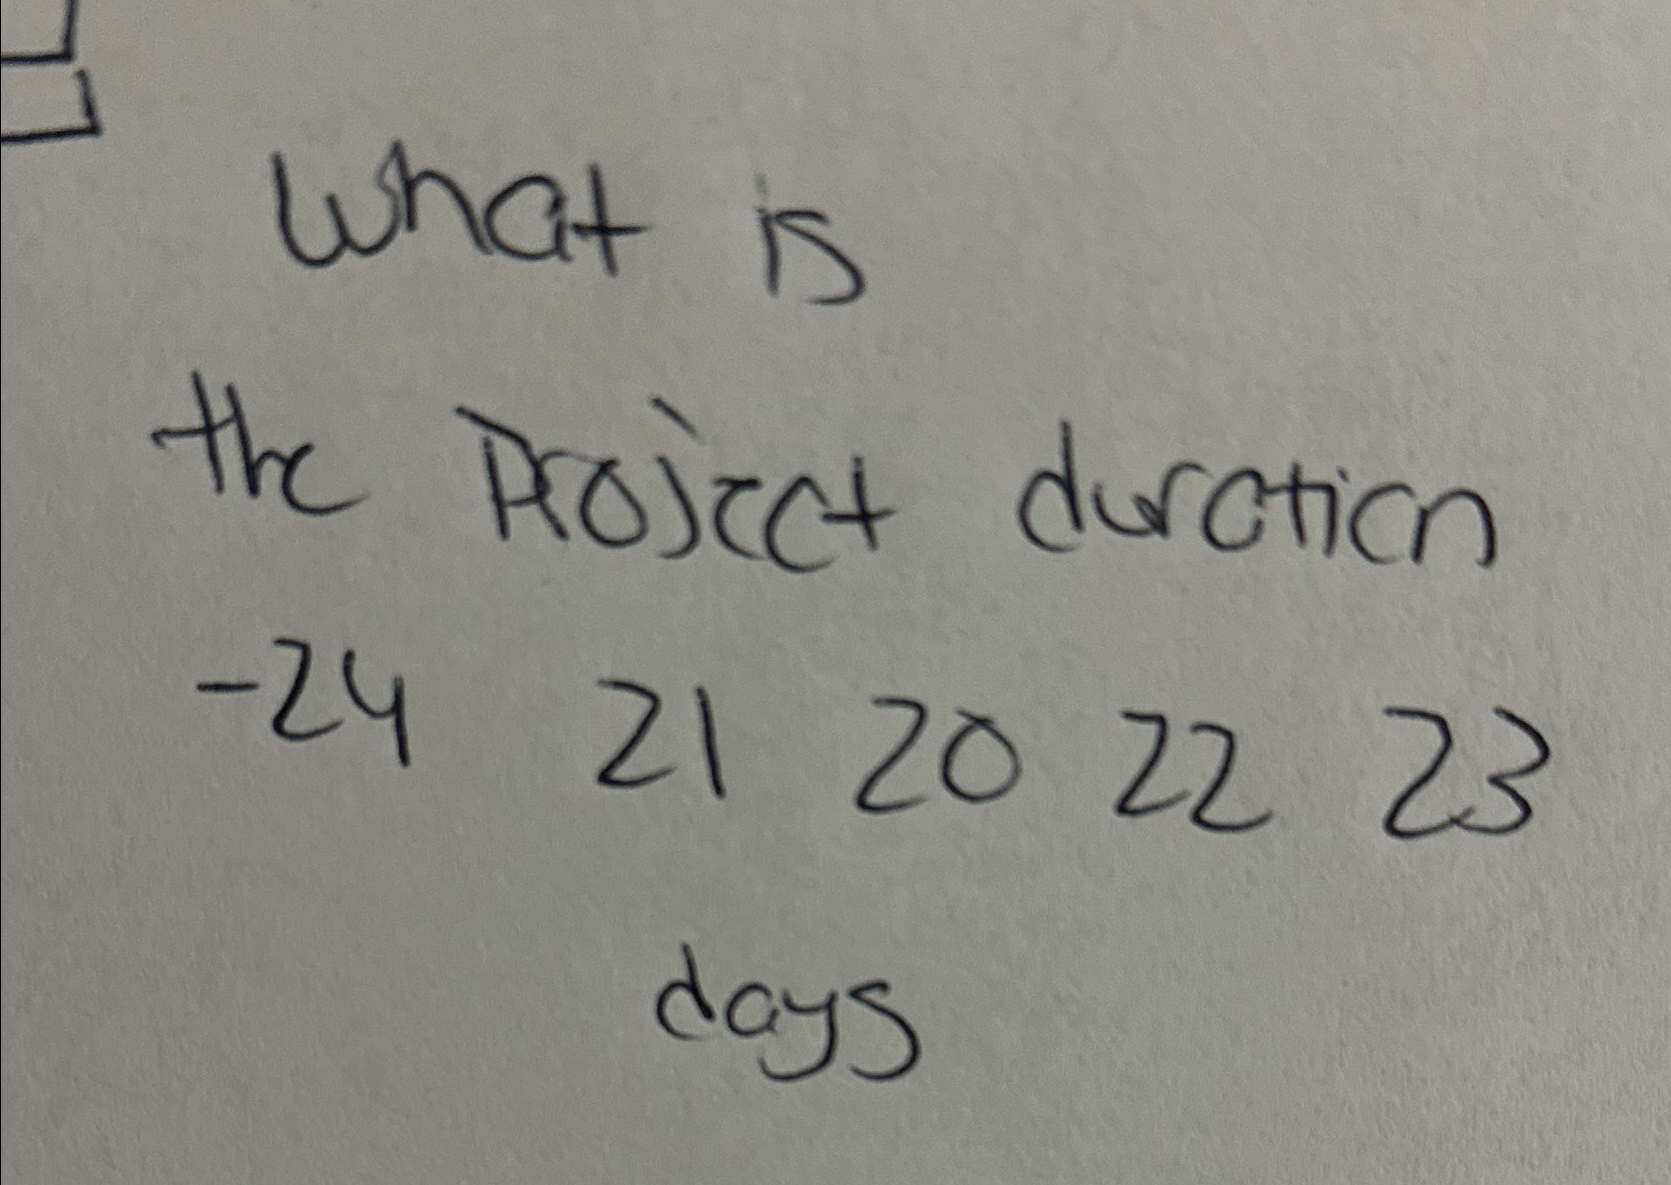 What is
the Project duration
-24 21 20 22 23
days